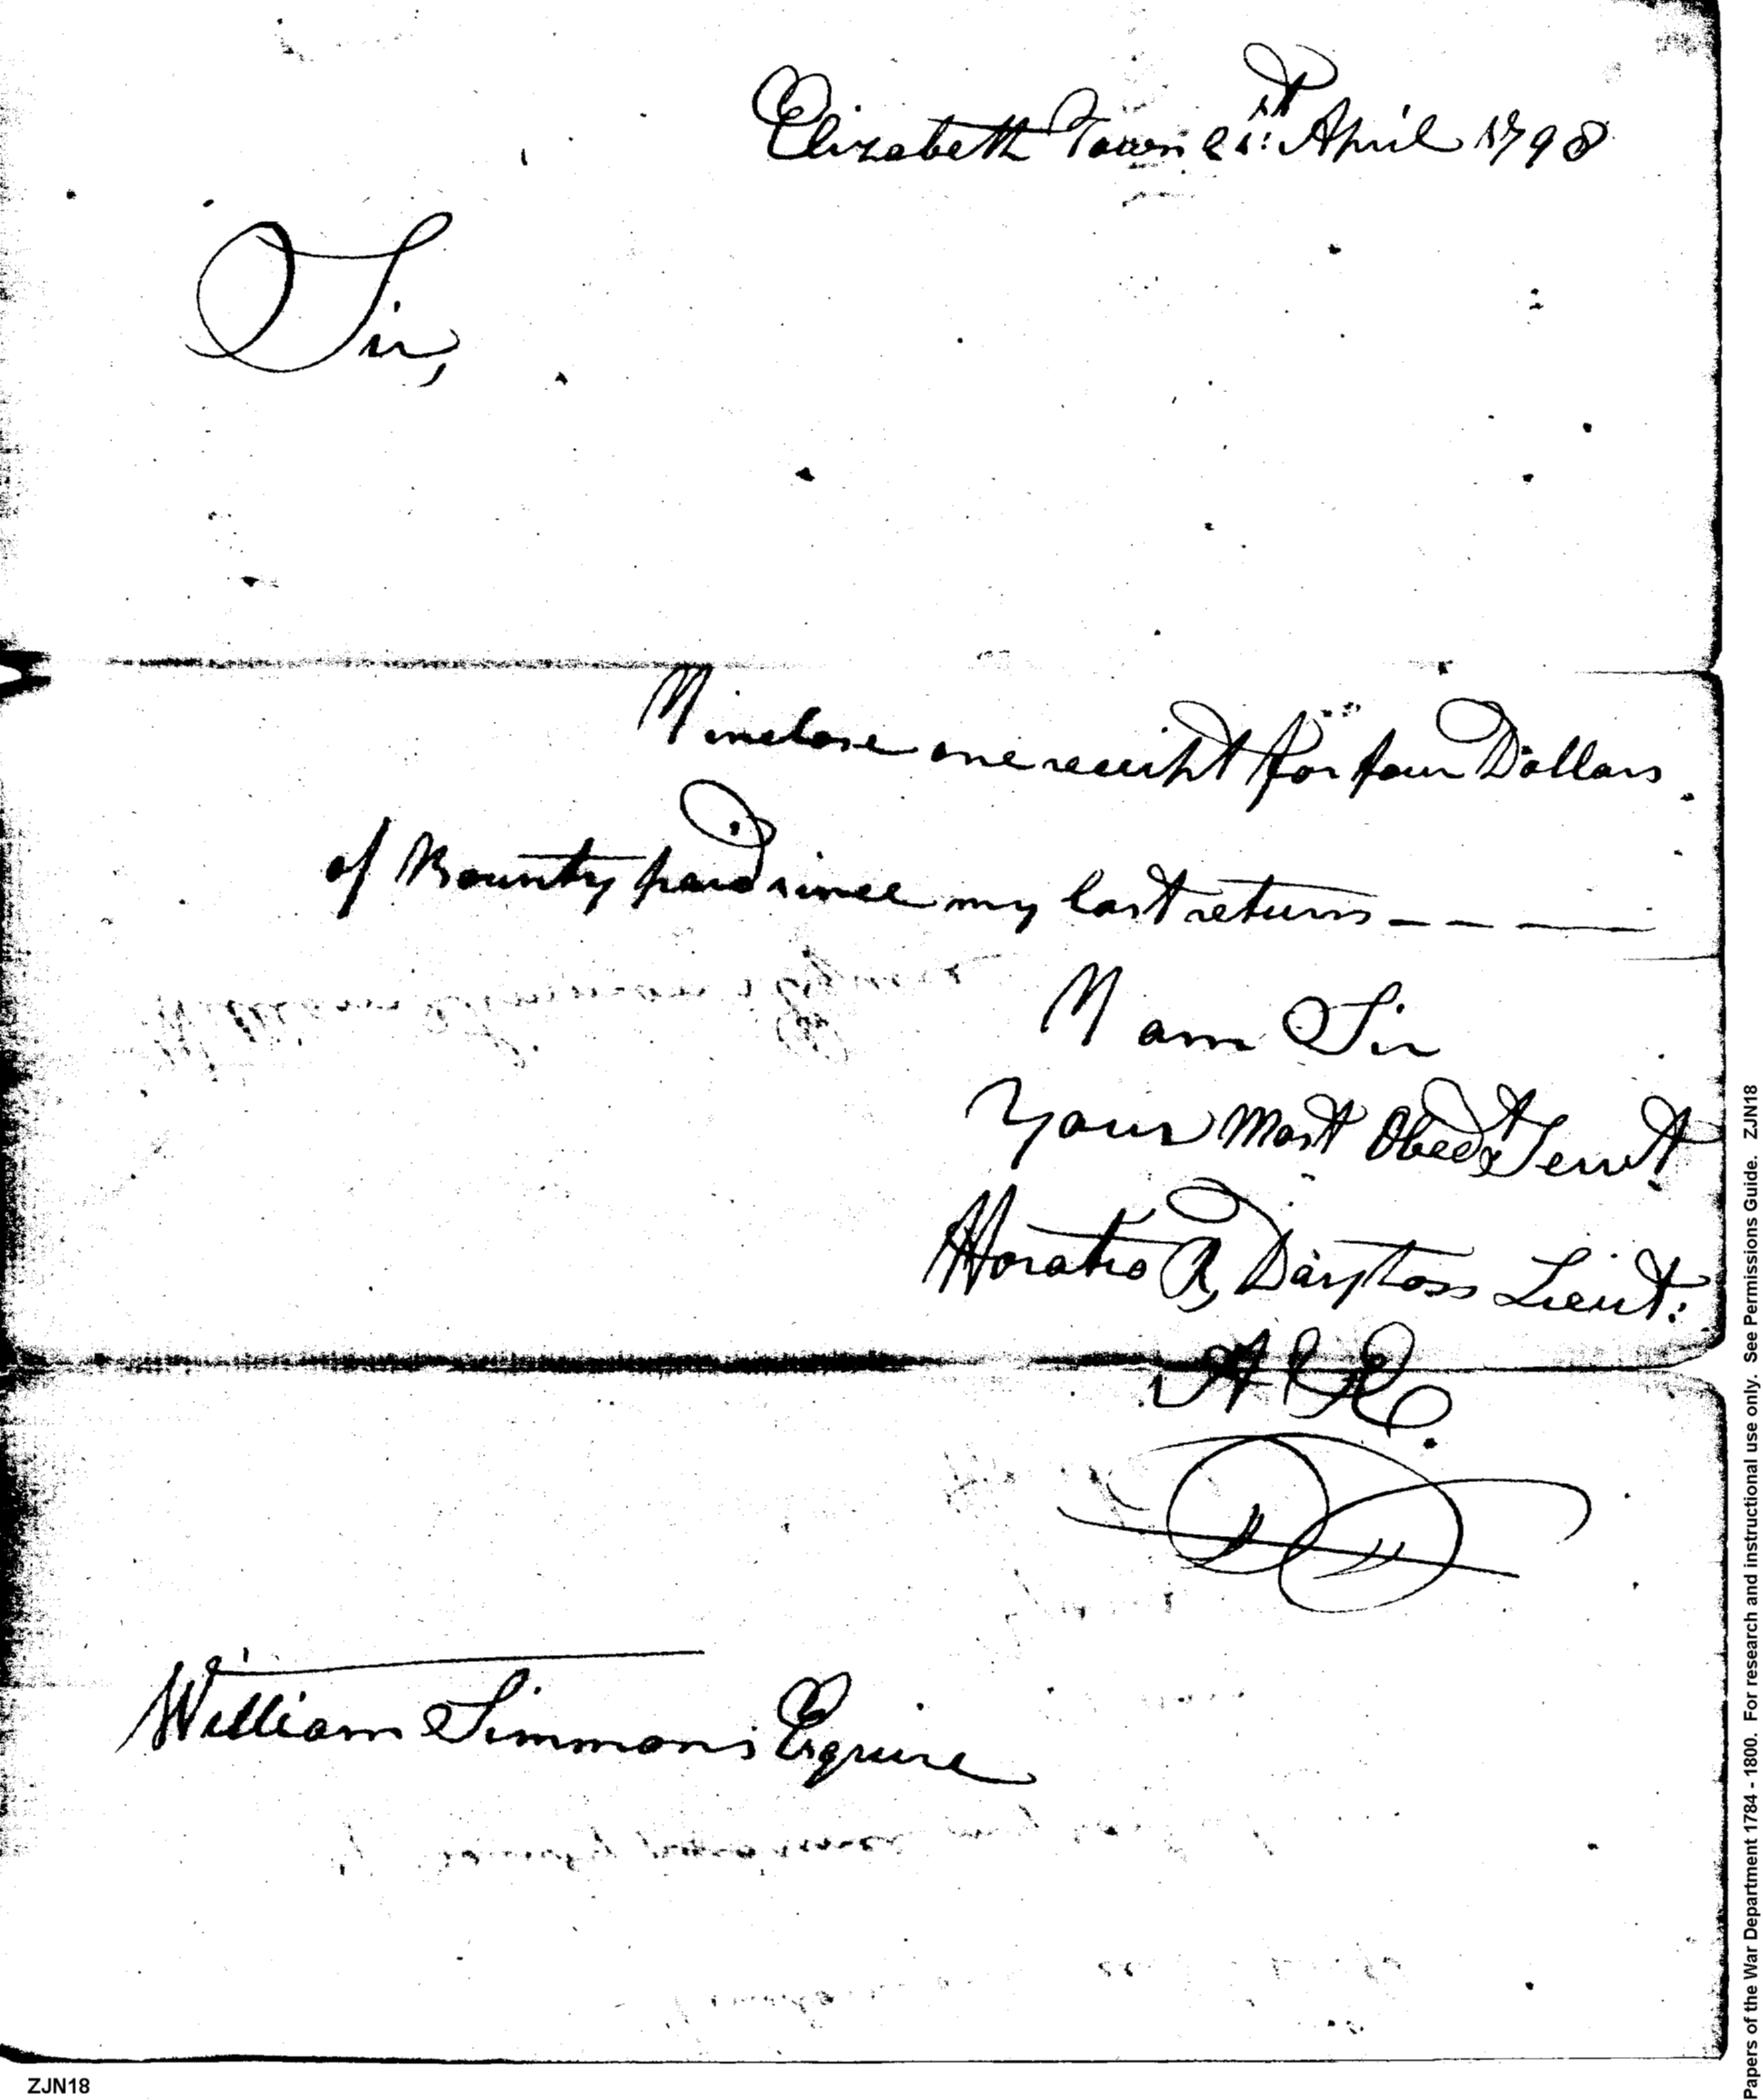 Elizabeth Town 21st: April 1798
Sir,
I inclose one receipt for four Dollars
of Bounty paid since my last returns – – —
I am Sir
Your Most Obedt Servt
Horatio R, Dayton Lieut:
William Simmons Esquire
ZJN18
Papers of the War Department 1784 - 1800. For research and instructional use only. See Permissions Guide. ZJN18